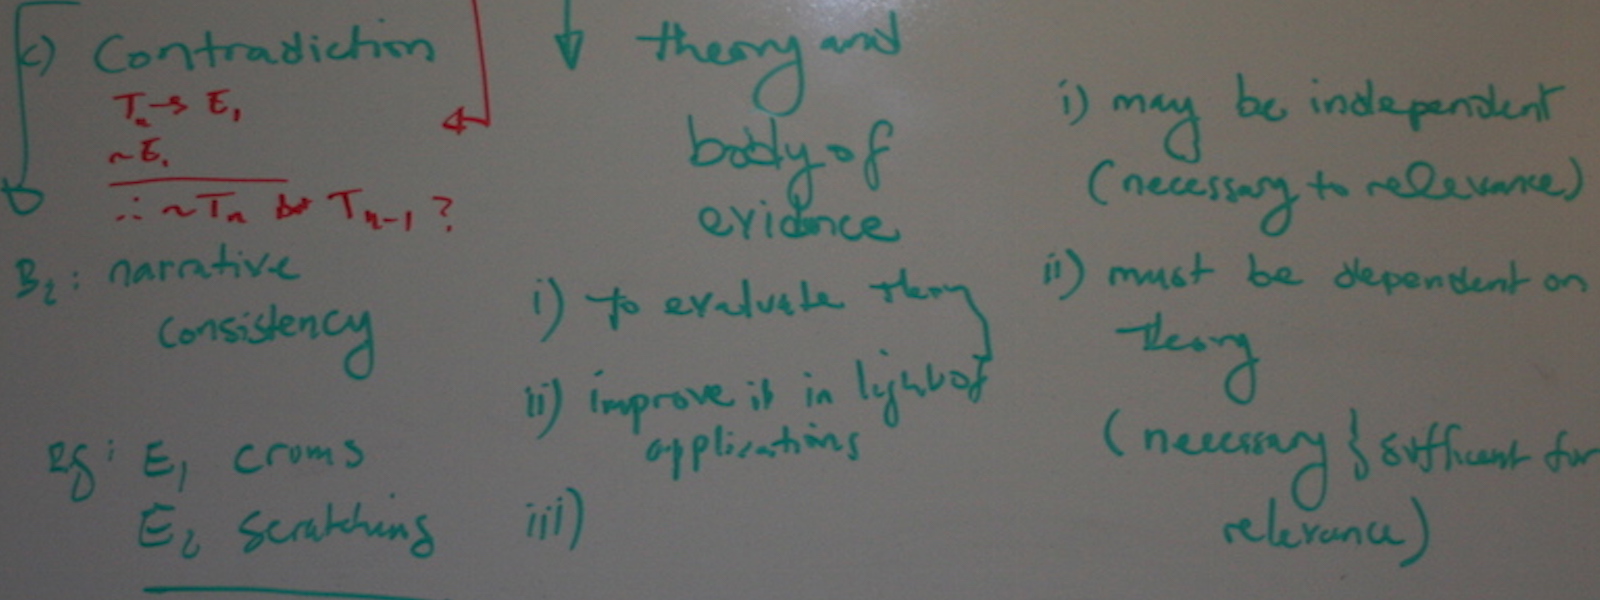 c) Contradiction
Tn → E1
~E1
∴ ~Tn but Tn-1 ?
B2: narrative
consistency
eg: E1 crums
E2 scratching
theory and
body of
evidence
i) to evaluate theory
ii) improve it in light of
applications
iii)
i) may be independent
(necessary to relevance)
ii) must be dependent on
theory
(necessary } sufficient for
relevance)